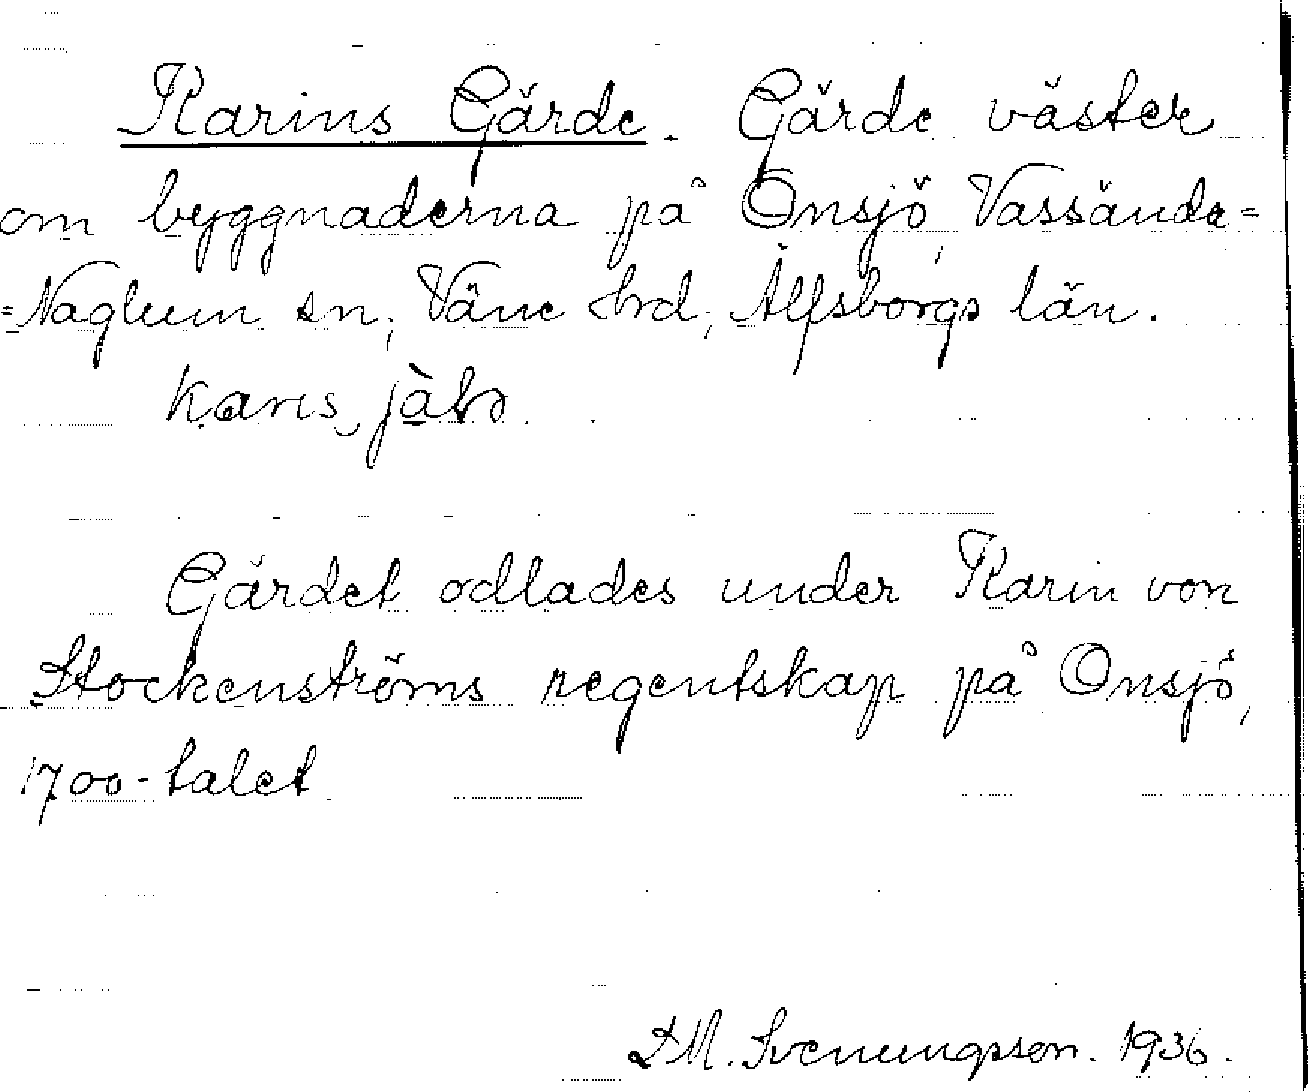 Karins Gärde. Gärde väster
om byggnaderna på Onsjö, Vassända=
=Naglum sn, Väne hrd, Älfsborgs län.
Gärdet odlades under Karin von
Stockenströms regentskap på Onsjö,
1700-talet
D M. Svenungsson. 1936.